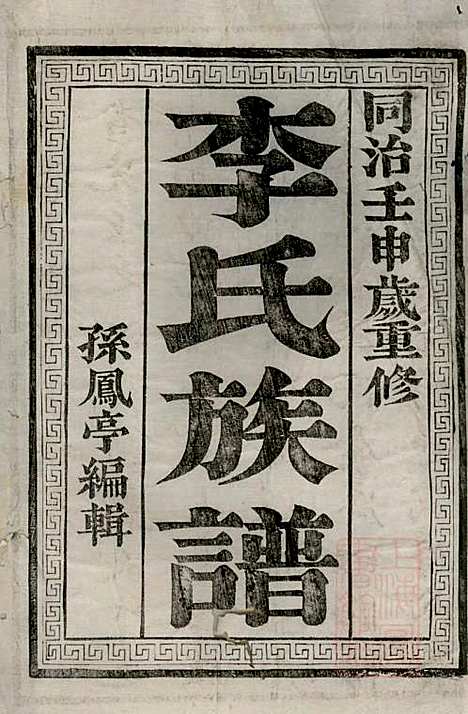 同治壬申歲重修
李氏族譜
孫鳳亭編輯